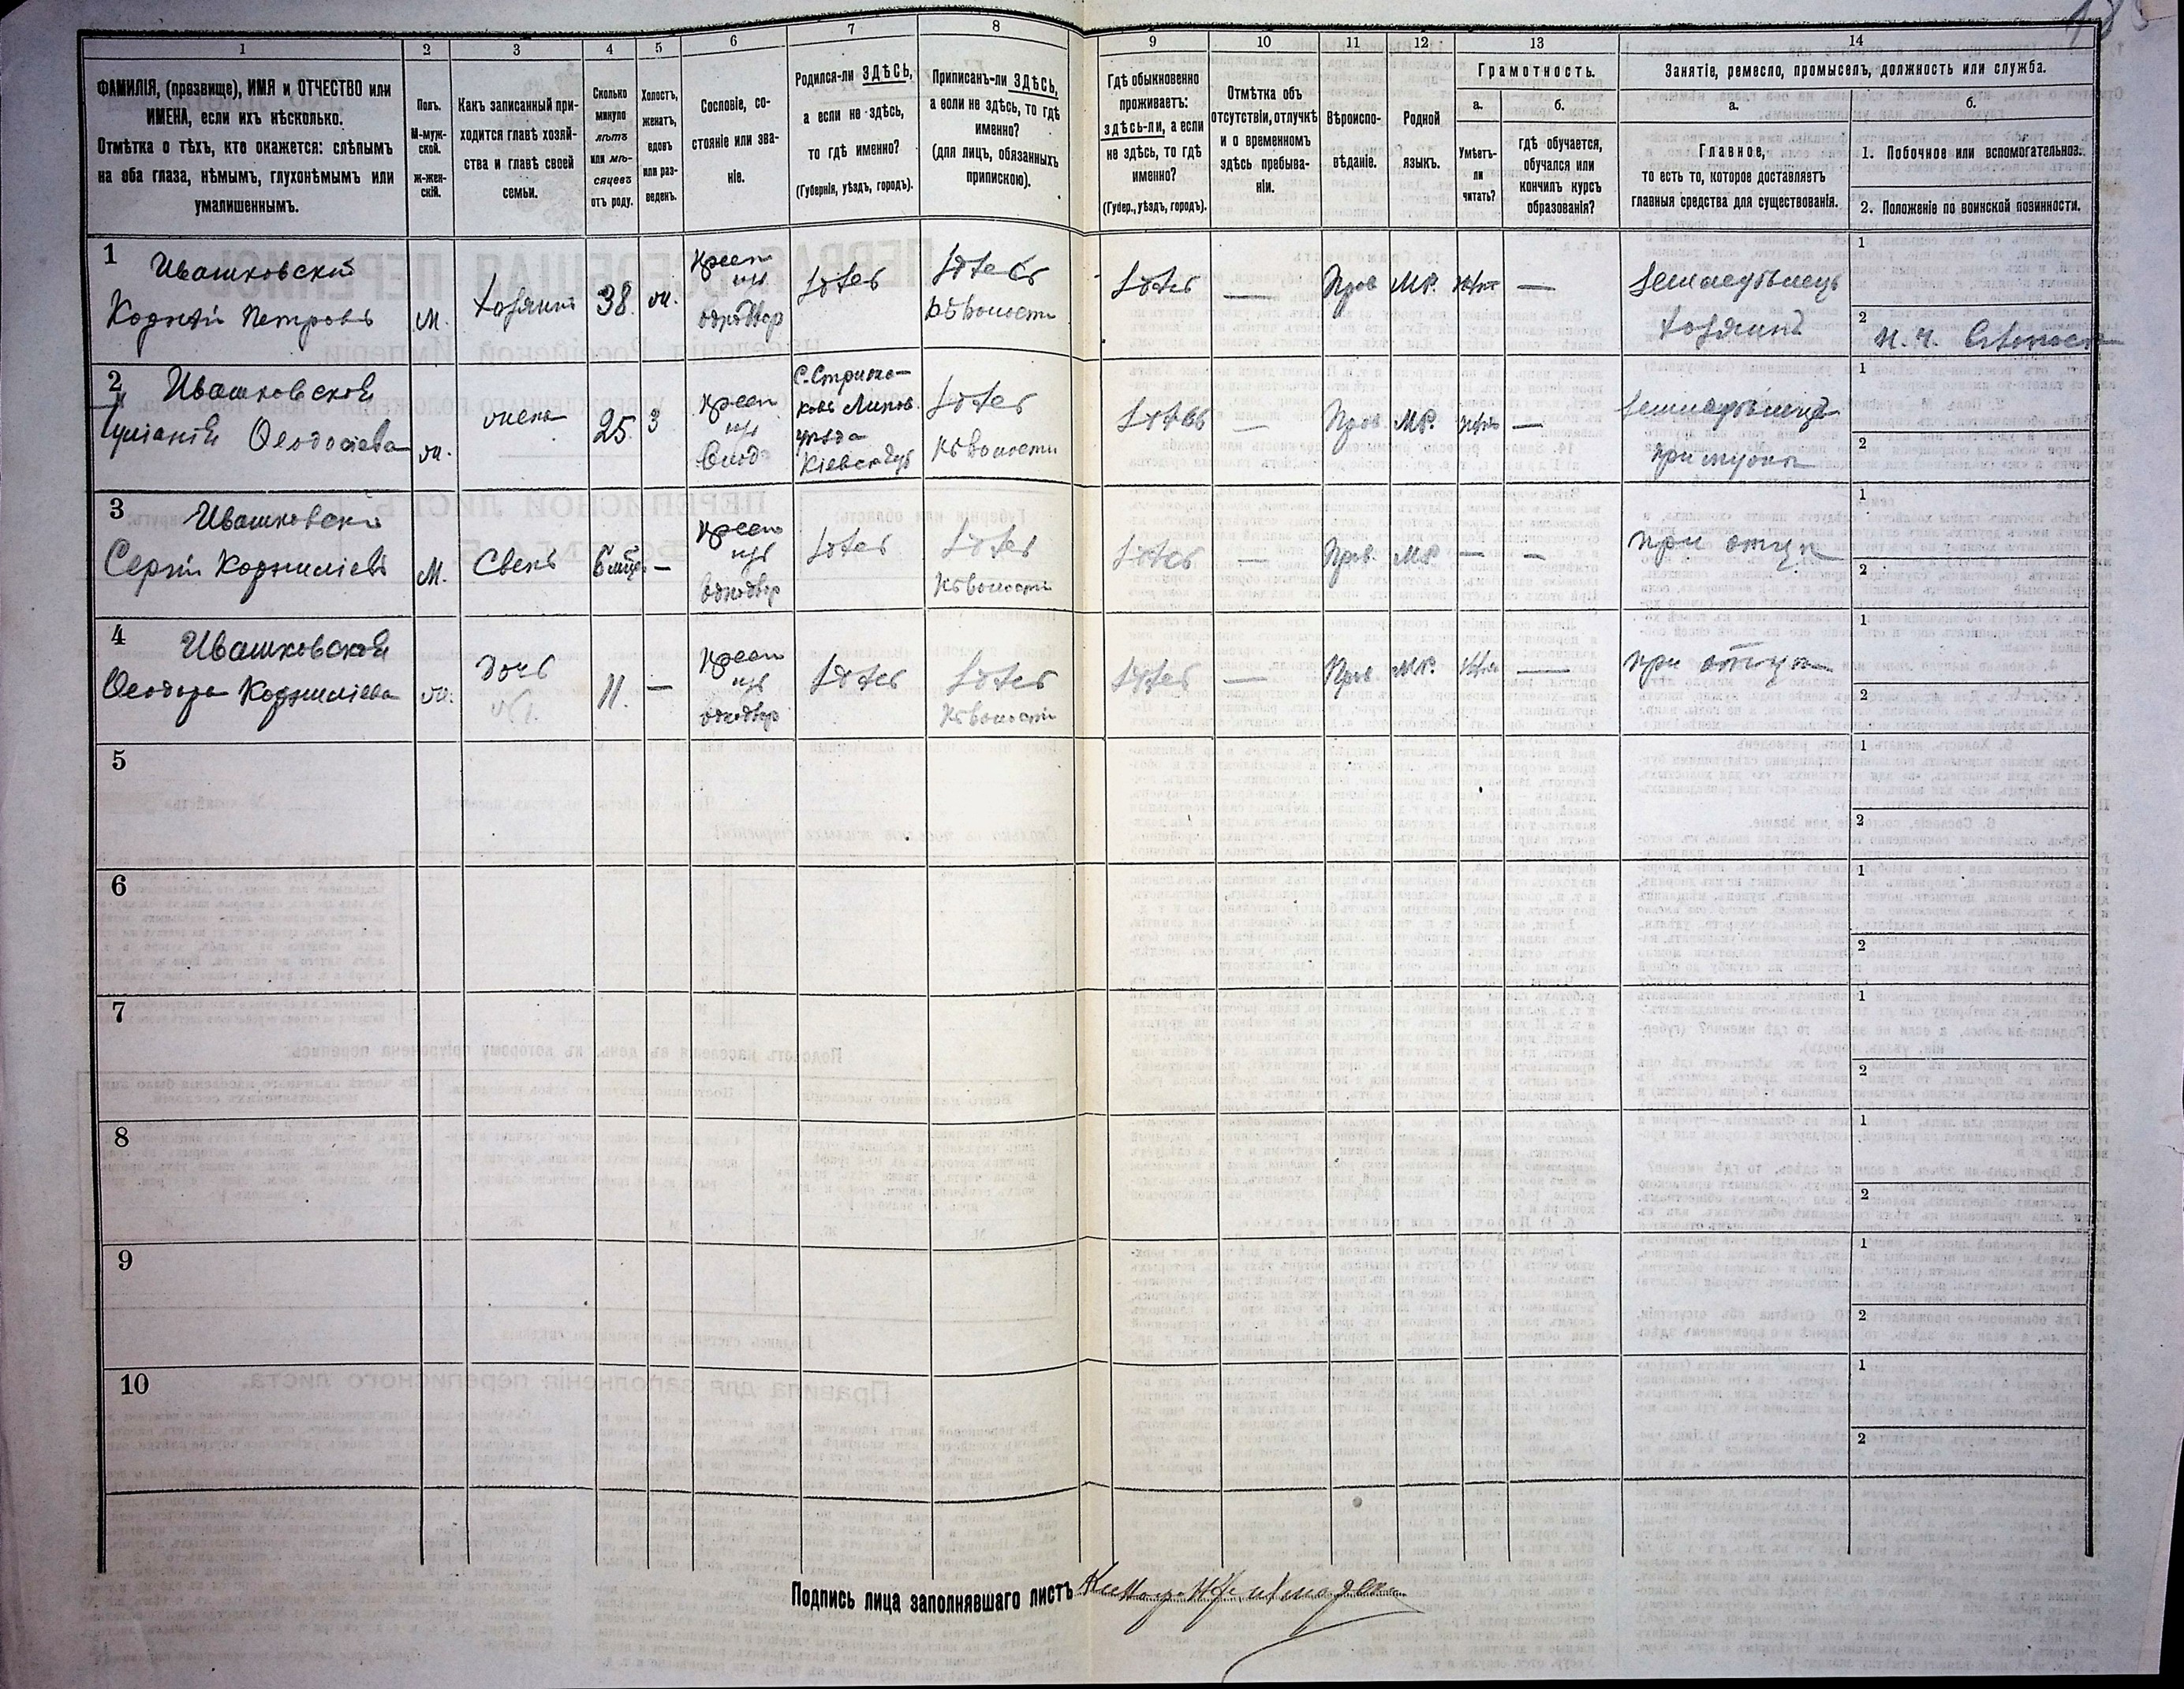 1
2
3
4
5
6
7
8
9
10
11
12
13
14
ФАМИЛІЯ, (прозвище), ИМЯ и ОТЧЕСТВО или
ИМЕНА, если ихъ нѣсколько.
Отмѣтка о тѣхъ, кто окажется: слѣпымъ
на оба глаза, нѣмымъ, глухонѣмымъ или
умалишеннымъ.
Полъ.
М-муж-
ской.
ж-жен-
скій.
Какъ записанный при-
ходится главѣ хозяй-
ства и главѣ своей
семьи.
Сколько
минуло
лѣтъ
или мѣ-
сяцевъ
отъ роду.
Холостъ,
женатъ,
вдовъ
или раз-
веденъ.
Сословіе, со-
стояніе или зва-
ніе.
Родился-ли ЗДѢСЬ,
а если не здѣсь,
то гдѣ именно?
(Губернія, уѣздъ, городъ).
Приписанъ-ли ЗДѢСЬ,
а если не здѣсь, то гдѣ
именно?
(для лицъ, обязанныхъ
припискою).
Гдѣ обыкновенно
проживаетъ:
здѣсь-ли, а если
не здѣсь, то гдѣ
именно?
(Губер., уѣздъ, городъ).
Отмѣтка объ
отсутствіи, отлучкѣ
и о временномъ
здѣсь пребыва-
ніи.
Вѣроиспо-
вѣданіе.
Родной
языкъ.
Грамотность.
а.
Умѣетъ-
ли
читать?
б.
Гдѣ обучается,
обучался или
кончилъ курсъ
образованія?
Занятіе, ремесло, промыселъ, должность или служба.
а.
Главное,
то есть то, которое доставляетъ
главныя средства для существованія.
б.
1. Побочное или вспомогательное.
2. Положеніе по воинской повинности.
1
Ивашковскій
Петровъ
м.
хозяинъ
38
ж.
крест
изъ
однодвор
здѣсь
здѣсь
въ волости
здѣсь
—
Прав
МР.
нѣтъ
—
земледѣлецъ
хозяинъ
1
2
2
Ивашковская
Ѳеодосіева
ж.
жена
25
з
крест
изъ
С. Стриже-
ковъ Липов.
уѣзда
Кіевск губ
здѣсь
къ волости
здѣсь
—
Прав
МР.
нѣтъ
—
при мужѣ
1
2
3
Ивашковскій
Сергій Корниліевъ
м.
Сынъ
6 мѣс
—
крест
изъ
однодвор
здѣсь
здѣсь
къ волости
здѣсь
—
Прав.
МР
—
—
при отцѣ
1
2
4
Ивашковская
Ѳеодора Корниліева
ж.
дочь
11.
—
крест
изъ
однодвор
здѣсь
здѣсь
къ волости
здѣсь
—
Прав.
МР.
нѣтъ
—
при отцѣ
1
2
5
1
2
6
1
2
7
1
2
8
1
2
9
1
2
10
1
2
Подпись лица заполнявшаго листъ